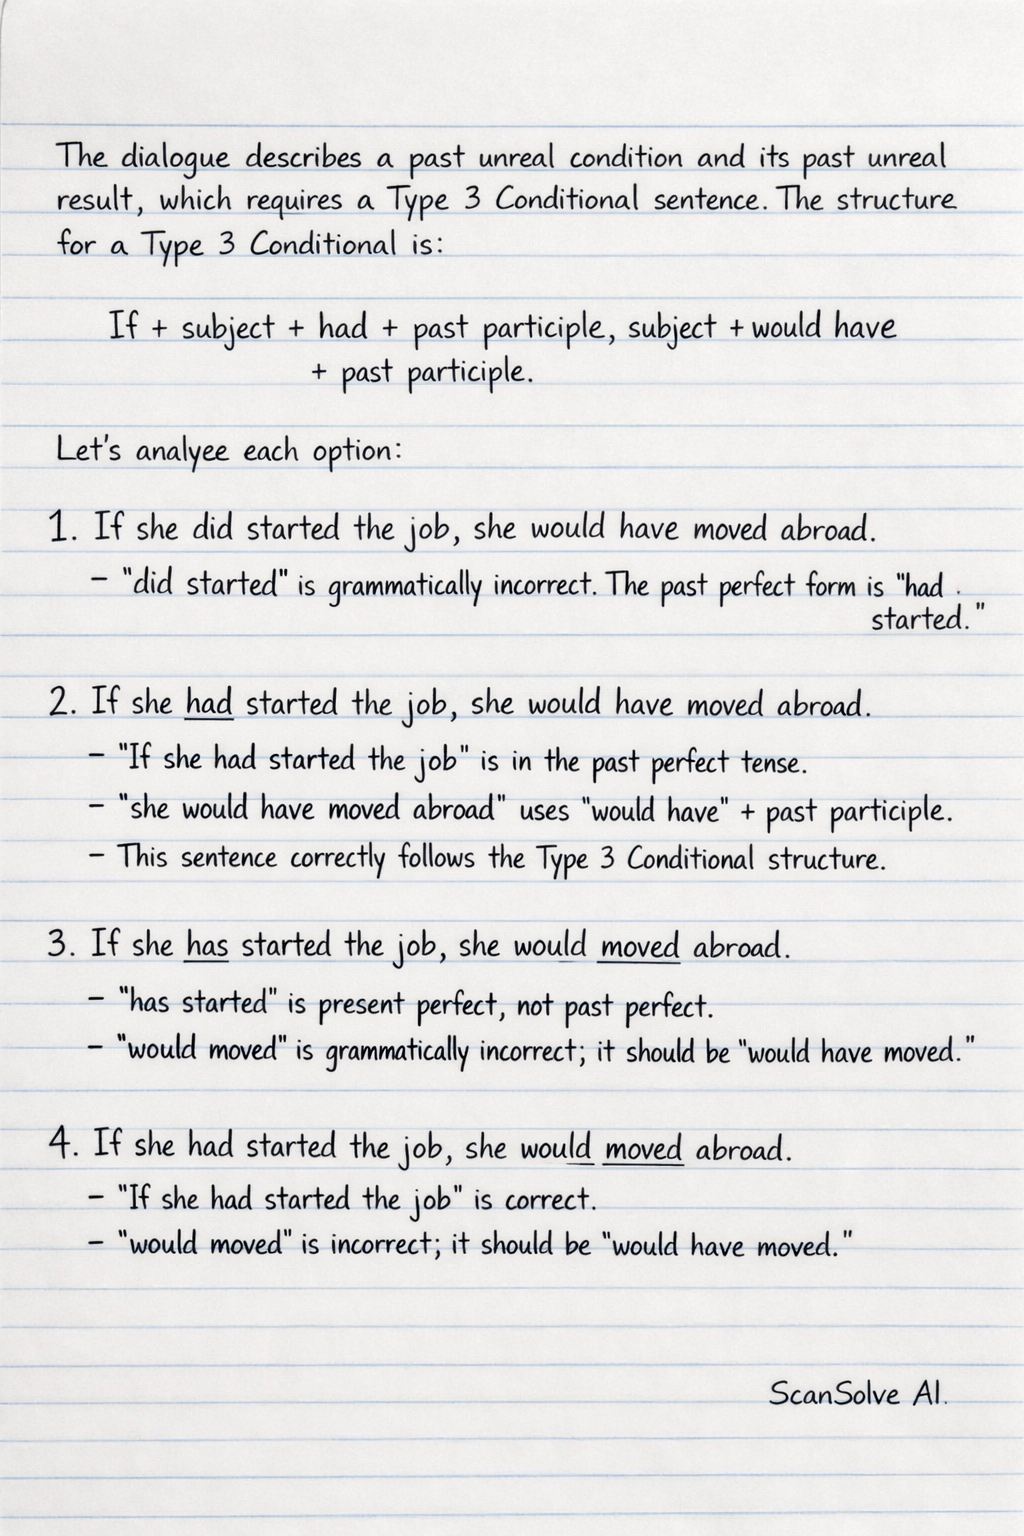 The dialogue describes a past unreal condition and its past unreal
result, which requires a Type 3 Conditional sentence. The structure
for a Type 3 Conditional is:
If + subject + had + past participle, subject + would have
+ past participle.
Let's analyee each option:
1. If she did started the job, she would have moved abroad.
- "did started" is grammatically incorrect. The past perfect form is "had
started."
2. If she had started the job, she would have moved abroad.
- "If she had started the job" is in the past perfect tense.
- "she would have moved abroad" uses "would have" + past participle.
- This sentence correctly follows the Type 3 Conditional structure.
3. If she has started the job, she would moved abroad.
- "has started" is present perfect, not past perfect.
- "would moved" is grammatically incorrect; it should be "would have moved."
4. If she had started the job, she would moved abroad.
- "If she had started the job" is correct.
- "would moved" is incorrect; it should be "would have moved."
ScanSolve AI.